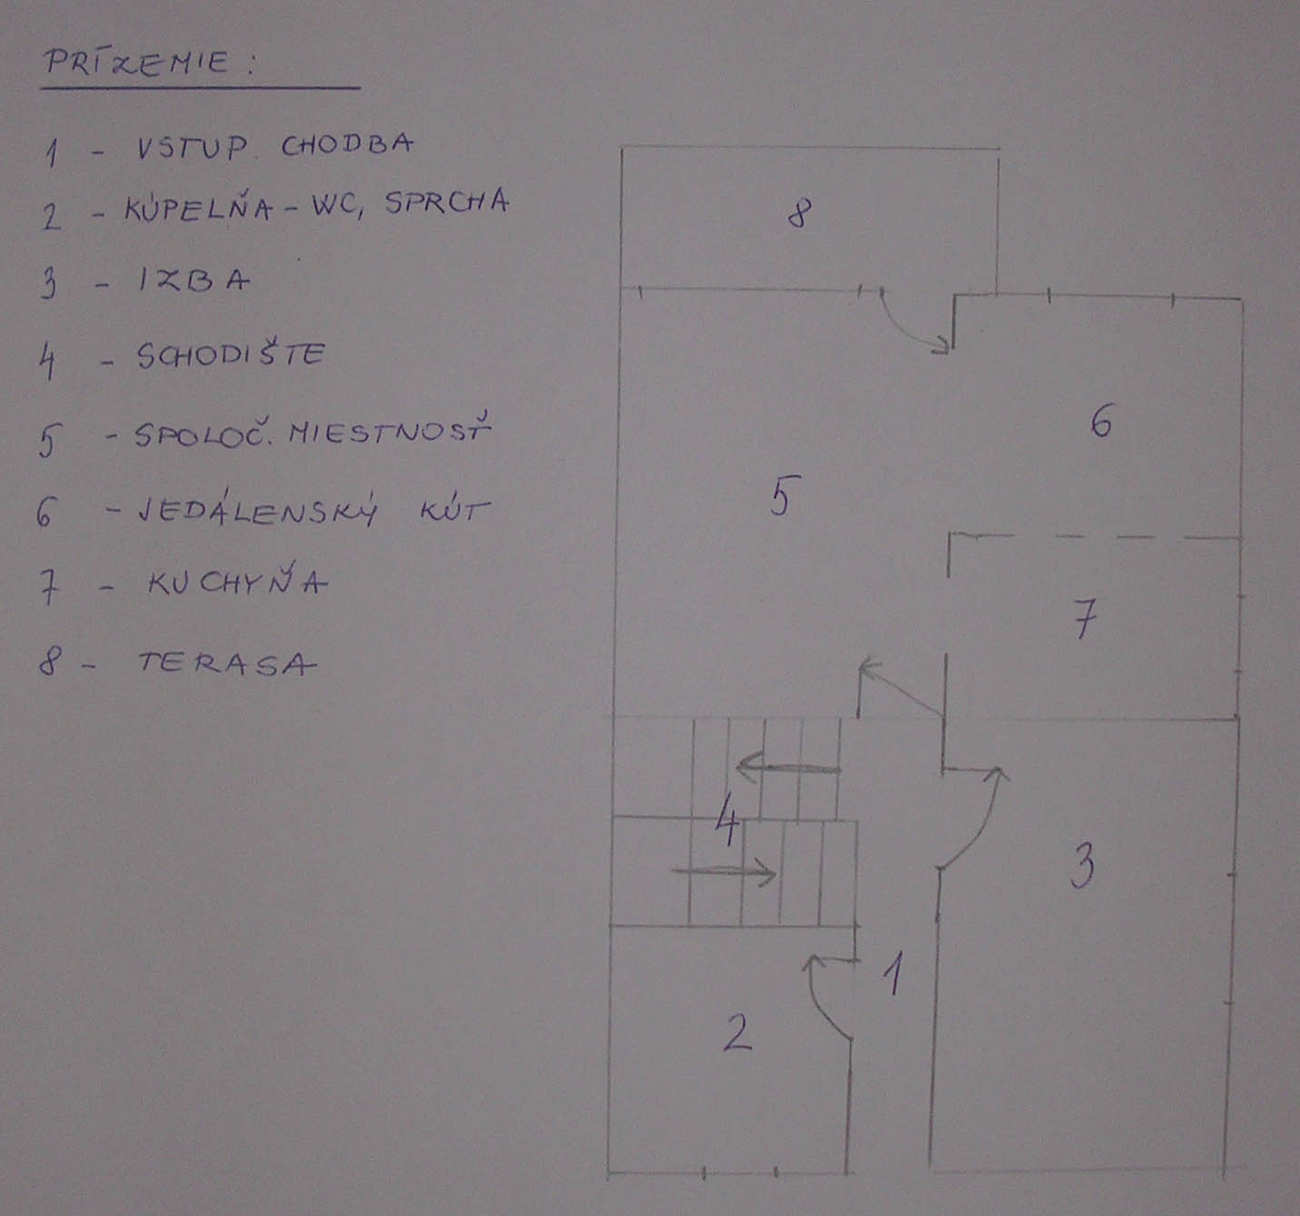 PRÍZEMIE :
1 - VSTUP. CHODBA
2 - KÚPELŇA - WC, SPRCHA
3 - IZBA
4 - SCHODIŠTE
5 - SPOLOČ. MIESTNOSŤ
6 - JEDÁLENSKÝ KÚT
7 - KUCHYŇA
8 - TERASA
8
6
5
7
4
3
1
2